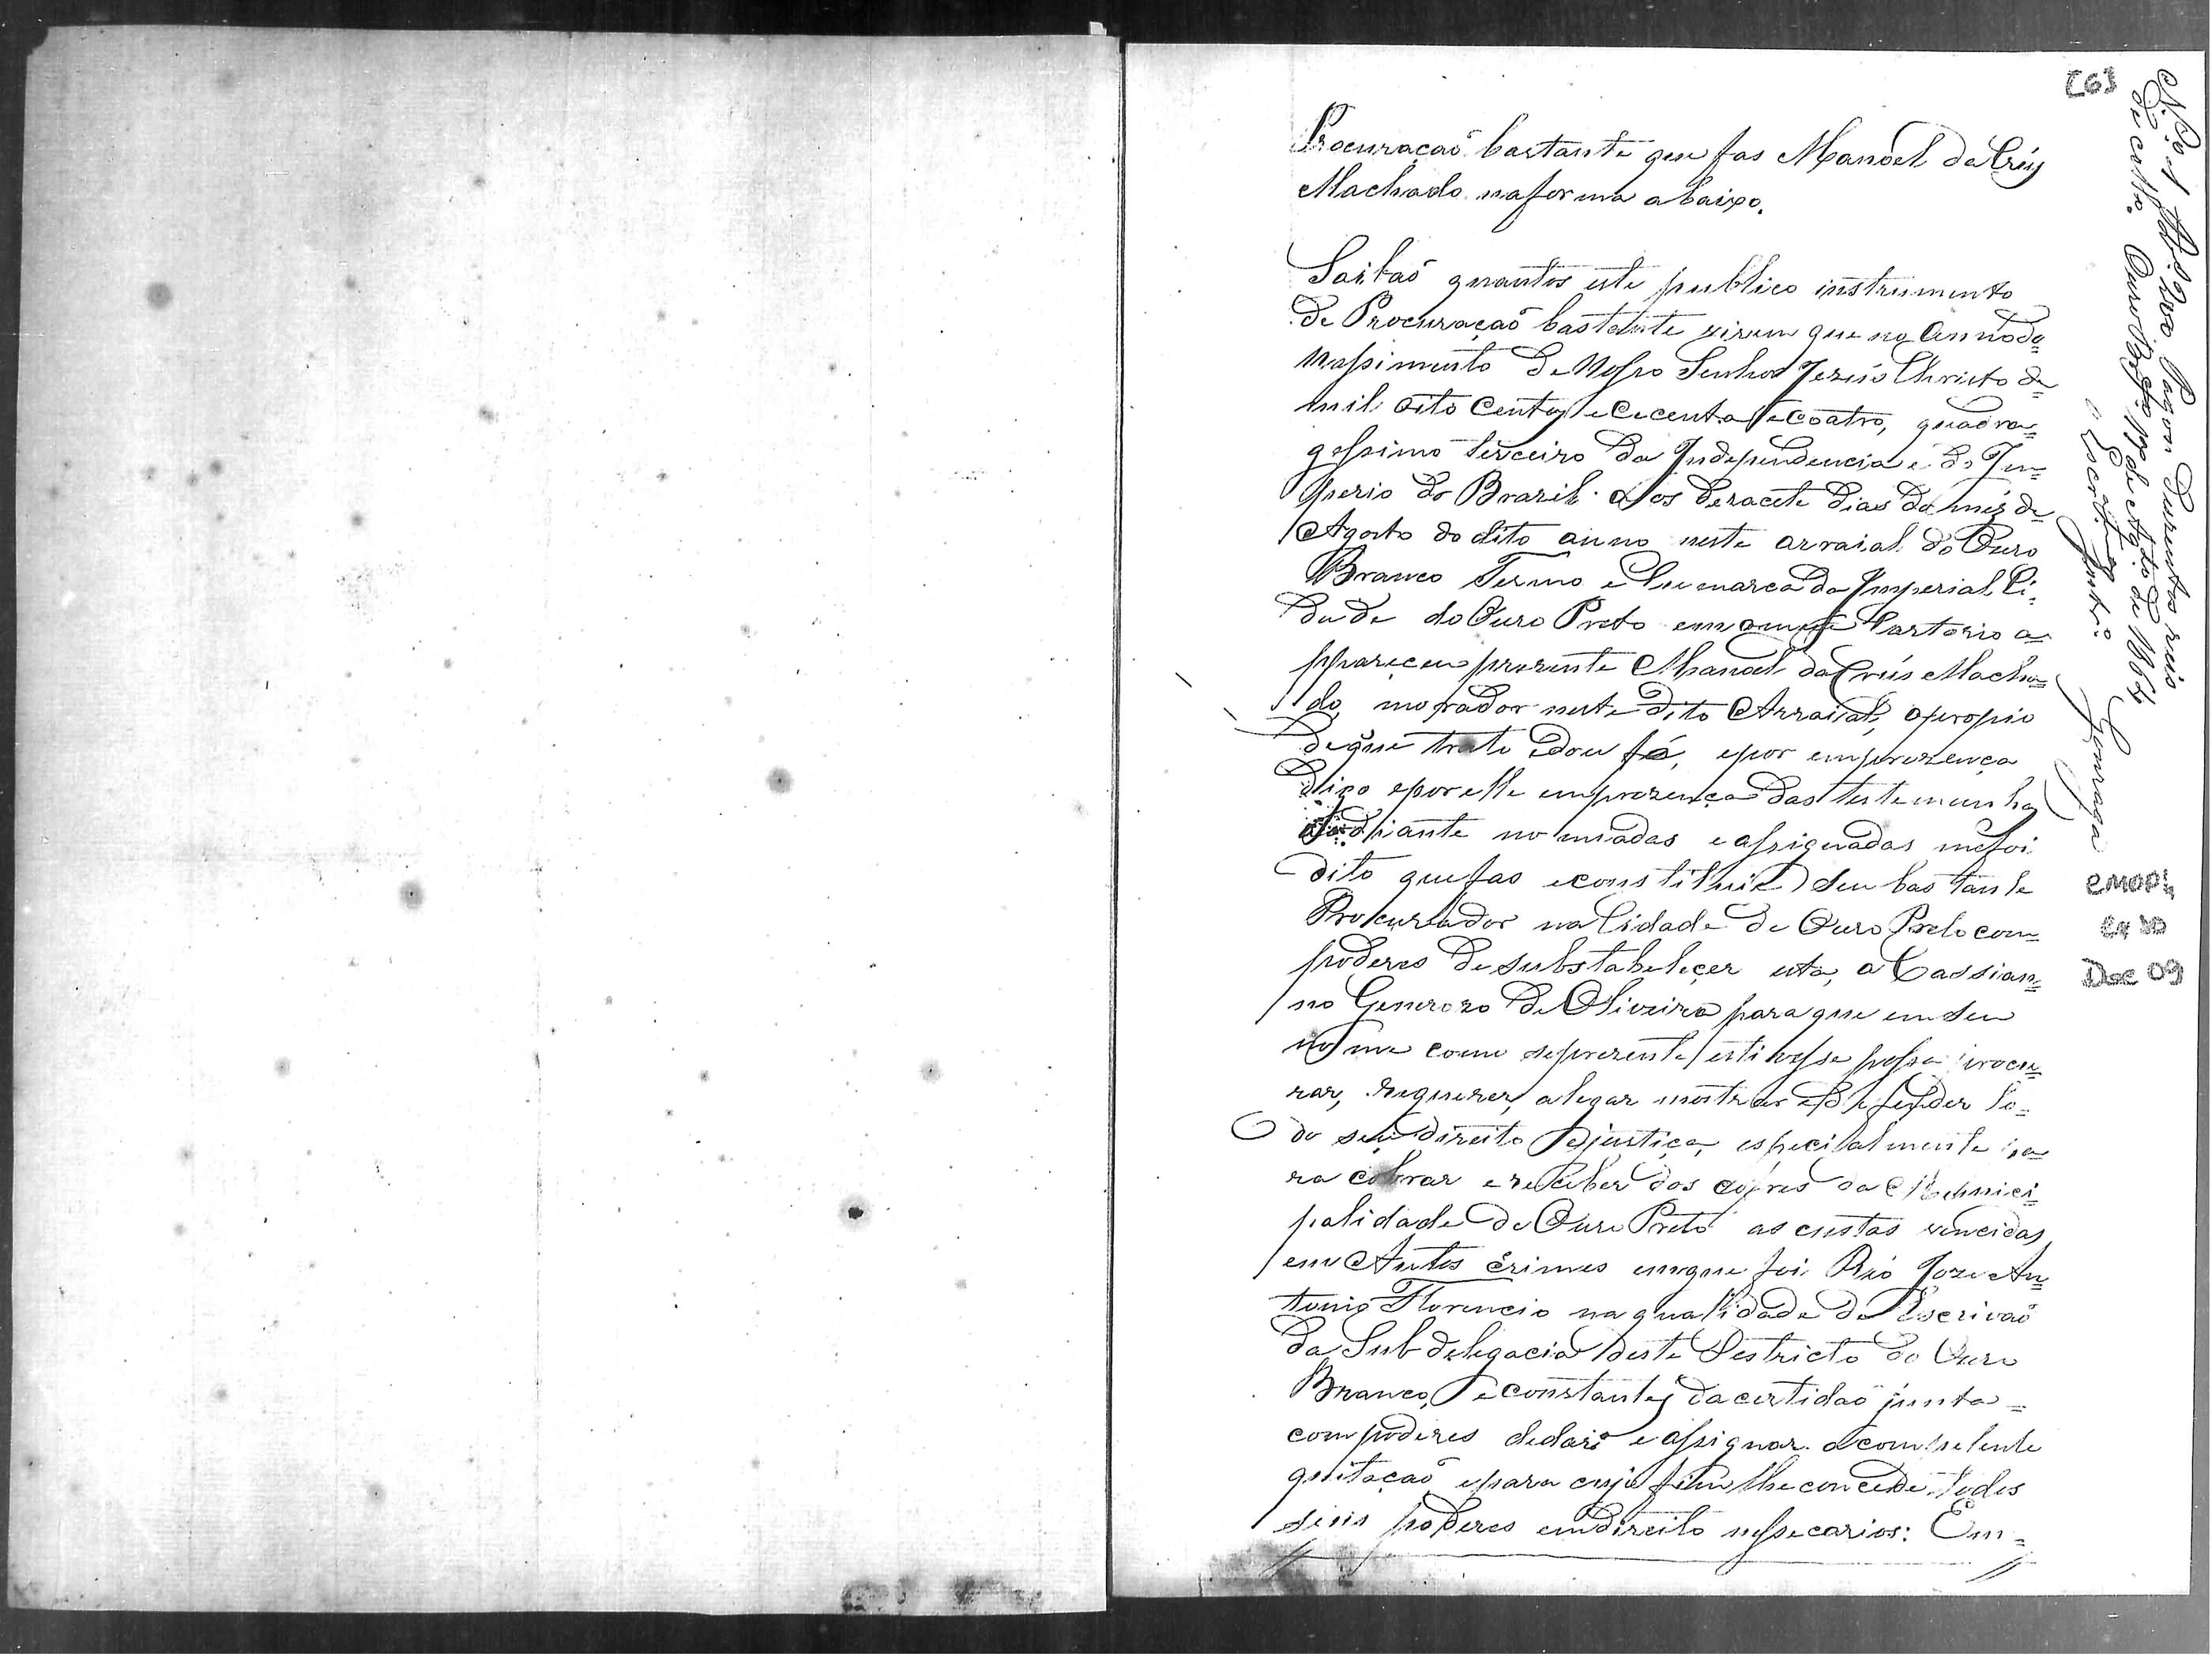 [6]
Procuração bastante que fas Manoel da Crús
Machado na forma abaixo.
Saibaõ quantos este publico instrumento
de Procuraçaõ bastante virem que no Anno do
Nassimento de Nosso Senhor Jezus Christo de
mil oito centos e Cecenta e Coatro, quadra=
gessimo terceiro da Independencia e do Im=
perio do Brazil aos dezacete dias do mês de
Agosto do dito anno neste arraial do Ouro
Branco Termo e Cumarca da Imperial Ci=
dade do Ouro Preto em o meu Cartorio a=
ppareceu prezente Manoel da Crús Macha=
do, morador neste dito Arraial, o propio
de que trato e dou fé, e por em prezença
digo e por elle em prezença das testemunhas
adiante nomiadas e assignadas me foi
dito que fas e constituie seu bastante
Procurador na Cidade de Ouro Preto com
poderes de substabeleçer esta, a Cassian=
no Generozo de Oliveira para que em seu
nome como se prezente estivesse possa procu=
rar, requerer, alegar mostrar e defender to=
do seu direito e justiça, especialmente pa
ra cobrar e receber dos cofres da Munici=
palidade de Ouro Preto as custas vencidas
em Autos Crimes em que foi Réo Joze An=
tonio Florencio na qualidade de Escrivaõ
da Subdelegacia deste Destricto do Ouro
Branco, e constantes da certidaõ junta =
com poderes de dar e assignar a competente
quitaçaõ e para cujo fim lhe concede todos
seus poderes em direito nessecarios: Em=
N.º 1 Rs 200 Pagou Duzentos reis
de sello. Ouro Br.co 17 de Ag.to de 1864
o Escr.am Gonzaga
CMOP
CX 80
Doc 09